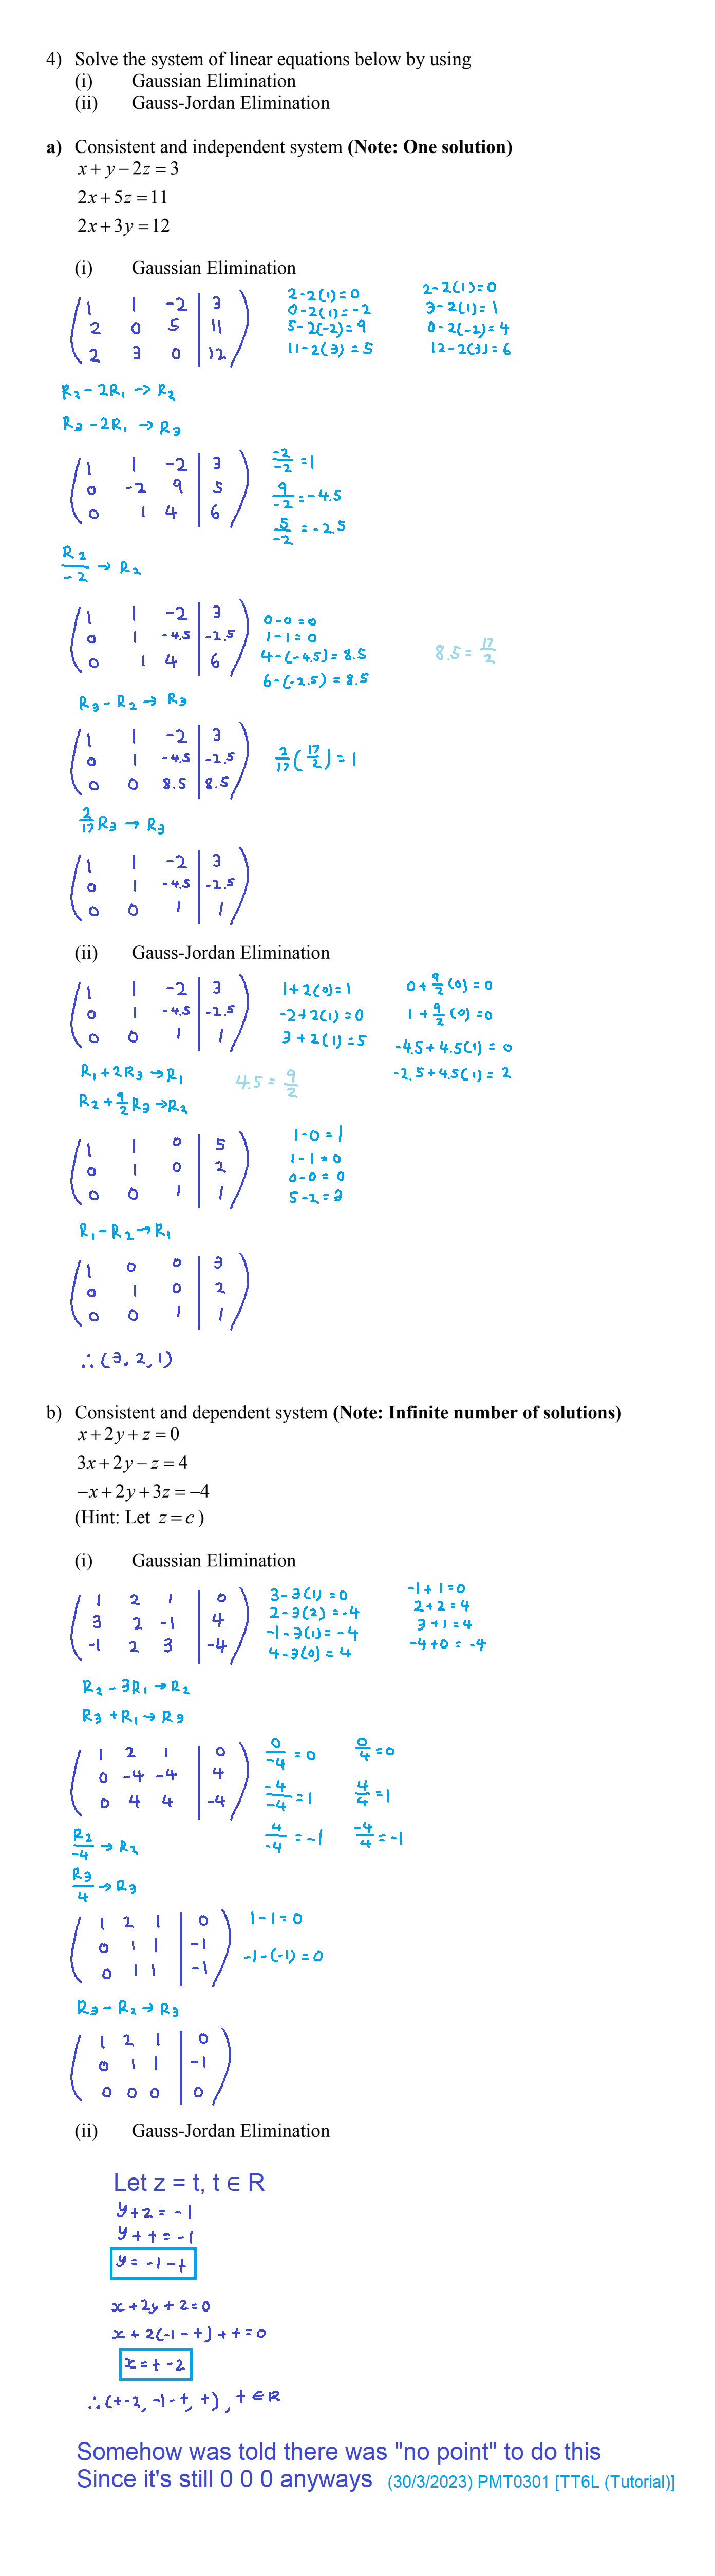 4) Solve the system of linear equations below by using
(i) Gaussian Elimination
(ii) Gauss-Jordan Elimination
a) Consistent and independent system (Note: One solution)
x + y − 2z = 3
2x + 5z = 11
2x + 3y = 12
(i) Gaussian Elimination
1 1 -2 | 3
2 0 5 | 11
2 3 0 | 12
2-2(1)=0
0-2(1)=-2
5-2(-2)=9
11-2(3)=5
2-2(1)=0
3-2(1)=1
0-2(-2)=4
12-2(3)=6
R₂ - 2R₁ → R₂
R₃ - 2R₁ → R₃
1 1 -2 | 3
0 -2 9 | 5
0 1 4 | 6
-2/-2 = 1
9/-2 = -4.5
5/-2 = -2.5
R₂/-2 → R₂
1 1 -2 | 3
0 1 -4.5 | -2.5
0 1 4 | 6
0-0=0
1-1=0
4-(-4.5)=8.5
6-(-2.5)=8.5
8.5 = 17/2
R₃ - R₂ → R₃
1 1 -2 | 3
0 1 -4.5 | -2.5
0 0 8.5 | 8.5
2/17 (17/2) = 1
2/17 R₃ → R₃
1 1 -2 | 3
0 1 -4.5 | -2.5
0 0 1 | 1
(ii) Gauss-Jordan Elimination
1 1 -2 | 3
0 1 -4.5 | -2.5
0 0 1 | 1
1+2(0)=1
-2+2(1)=0
3+2(1)=5
0+9/2(0)=0
1+9/2(0)=0
-4.5+4.5(1)=0
-2.5+4.5(1)=2
R₁ + 2R₃ → R₁
R₂ + 9/2 R₃ → R₂
4.5 = 9/2
1 1 0 | 5
0 1 0 | 2
0 0 1 | 1
1-0=1
1-1=0
0-0=0
5-2=3
R₁ - R₂ → R₁
1 0 0 | 3
0 1 0 | 2
0 0 1 | 1
∴ (3, 2, 1)
b) Consistent and dependent system (Note: Infinite number of solutions)
x + 2y + z = 0
3x + 2y − z = 4
−x + 2y + 3z = −4
(Hint: Let z = c )
(i) Gaussian Elimination
1 2 1 | 0
3 2 -1 | 4
-1 2 3 | -4
3-3(1)=0
2-3(2)=-4
-1-3(1)=-4
4-3(0)=4
-1+1=0
2+2=4
3+1=4
-4+0=-4
R₂ - 3R₁ → R₂
R₃ + R₁ → R₃
1 2 1 | 0
0 -4 -4 | 4
0 4 4 | -4
0/-4 = 0
-4/-4 = 1
4/-4 = -1
0/4 = 0
4/4 = 1
-4/4 = -1
R₂/-4 → R₂
R₃/4 → R₃
1 2 1 | 0
0 1 1 | -1
0 1 1 | -1
1-1=0
-1-(-1)=0
R₃ - R₂ → R₃
1 2 1 | 0
0 1 1 | -1
0 0 0 | 0
(ii) Gauss-Jordan Elimination
Let z = t, t ∈ R
y+z=-1
y+t=-1
y=-1-t
x+2y+z=0
x+2(-1-t)+t=0
x=t-2
∴ (t-2, -1-t, t), t ∈ R
Somehow was told there was "no point" to do this
Since it's still 0 0 0 anyways (30/3/2023) PMT0301 [TT6L (Tutorial)]